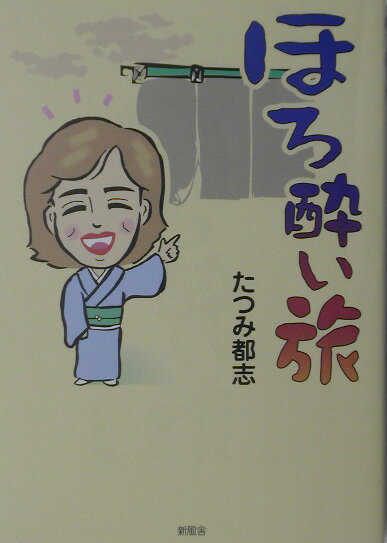 ほろ酔い旅
たつみ都志
新風舎